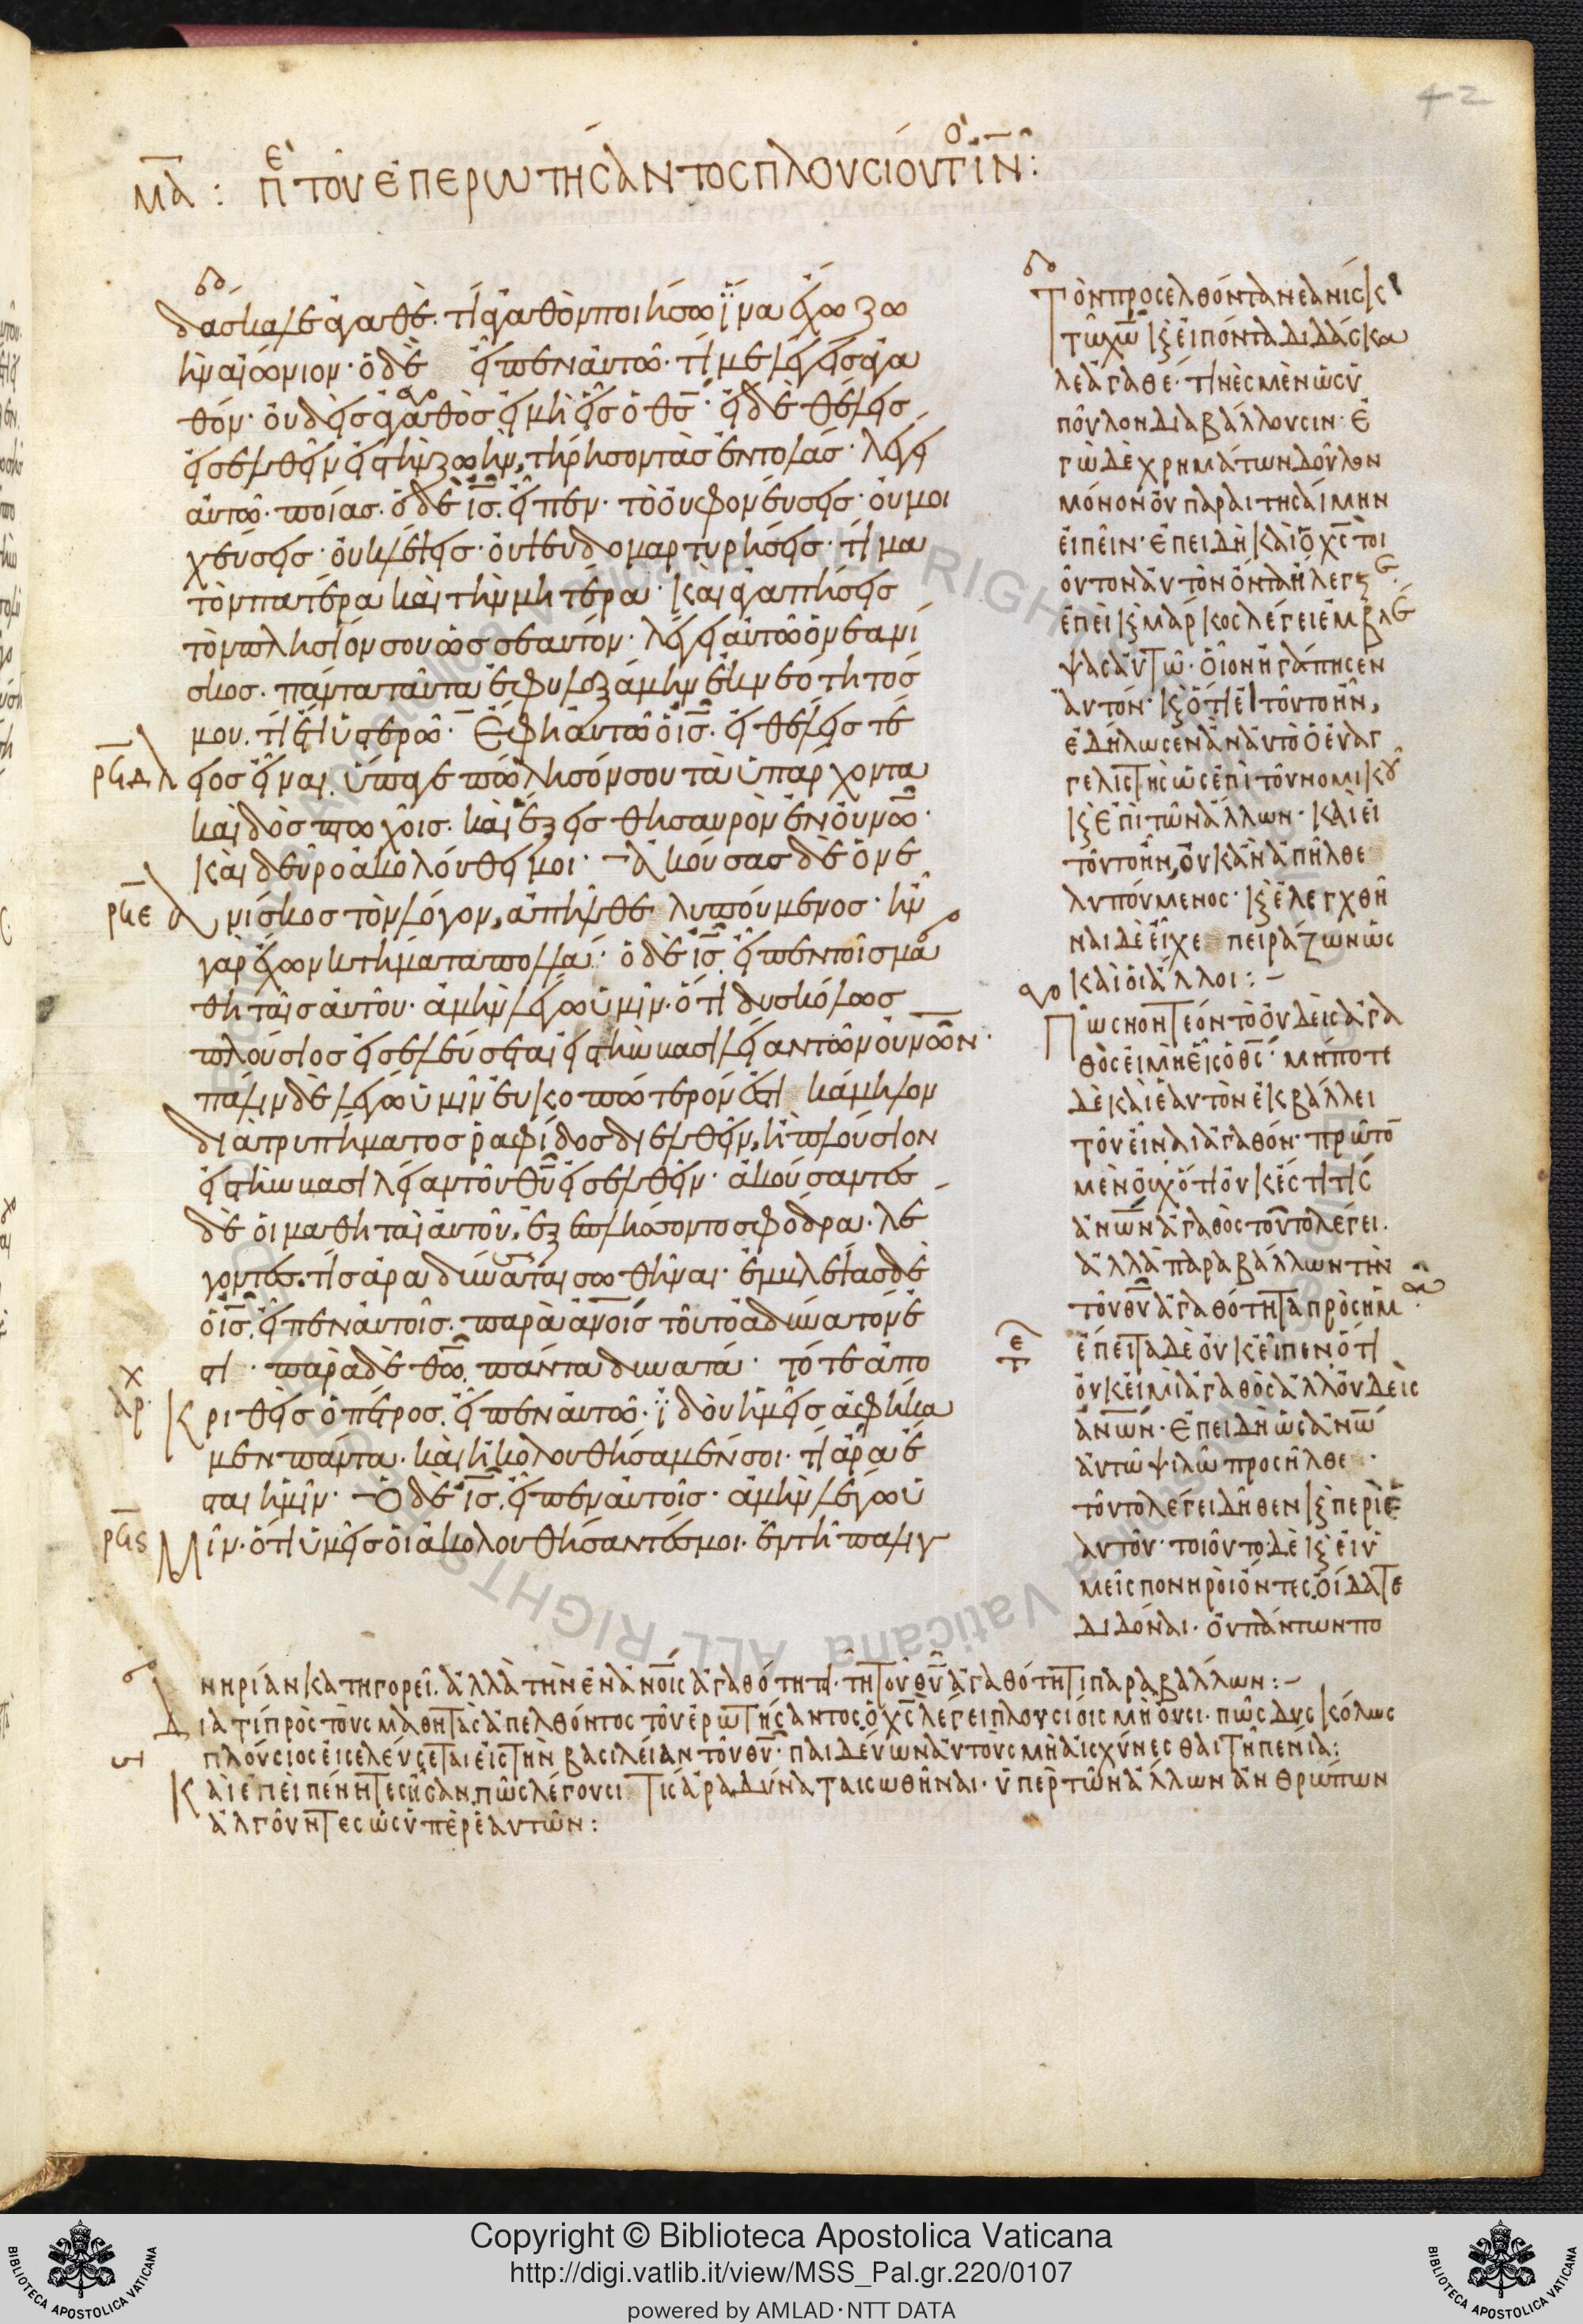 42
μα : πε τοῦ ἐπερωτήσαντος πλουσίου τὸ ιν :
δάσκαλε ἀγαθὲ. τί ἀγαθὸν ποιήσω ἵνα ἔχω ζω
ὴν αἰώνιον· ὁ δὲ εἶπεν αὐτῶ. τί με λέγεις ἀγα
θόν· οὐδεὶς ἀγαθὸς εἰ μὴ εἷς ὁ θς· εἰ δὲ θέλεις
εἰσελθεῖν εἰς τὴν ζωὴν, τήρησον τὰς ἐντολάς· λέγει
αὐτῶ· ποίας. ὁ δὲ ις. εἶπεν· τὸ οὐ φονεύσεις· οὐ μοι
χεύσεις· οὐ κλέψεις· οὐ ψευδομαρτυρήσεις· τίμα
τὸν πατέρα καὶ τὴν μητέρα· καὶ ἀγαπήσεις
τὸν πλησίον σου ὡς σεαυτόν· λέγει αὐτῶ ὁ νεανί
σκος. πάντα ταῦτα ἐφυλαξάμην ἐκ νεότητός
μου. τί ἔτι ὑστερῶ· Ἔφη αὐτῶ ὁ ις. εἰ θέλεις τέ
ρϟδ λειος εἶναι. ὕπαγε πώλησόν σου τὰ ὑπάρχοντα
καὶ δὸς πτωχοῖς. καὶ ἕξεις θησαυρὸν ἐν οὐνω·
καὶ δεῦρο ἀκολούθει μοι· Ἀκούσας δὲ ὁ νε
ρϟε ανίσκος τὸν λόγον, ἀπῆλθε λυπούμενος· ἦν
γὰρ ἔχων κτήματα πολλά· ὁ δὲ ις εἶπεν τοῖς μα
θηταῖς αὐτοῦ. ἀμὴν λέγω ὑμῖν. ὅτι δυσκόλως
πλούσιος εἰσελεύσεται εἰς τὴν βασιλείαν τῶν οὐνων·
πάλιν δὲ λέγω ὑμῖν εὐκοπώτερόν ἐστι κάμηλον
διὰ τρυπήματος ῥαφίδος διελθεῖν, ἢ πλούσιον
εἰς τὴν βασιλείαν τοῦ θυ εἰσελθεῖν· ἀκούσαντες
δὲ οἱ μαθηταὶ αὐτοῦ, ἐξεπλήσσοντο σφόδρα. λέ
γοντες. τίς ἄρα δύναται σωθῆναι· ἐμβλέψας δὲ
ὁ ις. εἶπεν αὐτοῖς. παρὰ ανοις τοῦτο ἀδύνατόν ἐ
στι· παρὰ δὲ θω πάντα δυνατά· τότε ἀπο
κριθεὶς ὁ πέτρος. εἶπεν αὐτῶ· ἰδοὺ ἡμεῖς ἀφήκα
μεν πάντα. καὶ ἠκολουθήσαμέν σοι. τί ἄρα ἔ
σται ἡμῖν· Ὁ δὲ ις. εἶπεν αὐτοῖς· ἀμὴν λέγω ὑ
ρϟς μῖν. ὅτι ὑμεῖς οἱ ἀκολουθήσαντές μοι. ἐν τῆ παλιγ
Τὸν προσελθόντα νεανίσκ
τῶ χω κ εἰπόντα διδάσκα
λε ἀγαθέ· τινὲς μὲν ὡς ὕ
πουλον διαβάλλουσιν· ἐ
γὼ δὲ χρημάτων δοῦλον
μόνον οὐ παραιτησαίμην
εἰπεῖν· ἐπειδὴ καὶ ὁ χς τοι
οῦτον αὐτὸν ὄντα ἤλεγξε.
ἐπεὶ κ μάρκος λέγει ἐμβλέ
ψας αὐτῶ· ὁ ις ἠγάπησεν
αὐτόν· κ ὅτι εἰ τοῦτο ἦν,
ἐδήλωσεν ἂν αὐτὸ ὁ εὐαγ
γελιστὴς ὡς ἐπὶ τοῦ νομικοῦ
κ ἐπὶ τῶν ἄλλων· καὶ εἰ
τοῦτο ἦν, οὐκ ἂν ἀπῆλθε
λυπούμενος· κ ἐλεγχθῆ
ναι δὲ εἶχε πειράζων ὡς
καὶ οἱ ἄλλοι :–
Πῶς νοητέον τὸ οὐδεὶς ἀγα
θὸς εἰ μὴ εἷς ὁ θς· μήποτε
δὲ καὶ ἑαυτὸν ἐκβάλλει
τοῦ εἶναι ἀγαθόν· πρῶτο
μὲν οὐχ ὅτι οὐκ ἔστι τις
ανων ἀγαθὸς τοῦτο λέγει.
ἀλλὰ παραβάλλων τὴν
τοῦ θυ ἀγαθότητα πρὸς ἡμ
ἔπειτα δὲ οὐκ εἶπεν ὅτι
οὐκ εἰμὶ ἀγαθὸς ἀλλ οὐδεὶς
ανων· ἐπειδὴ ὡς ανω
αὐτῶ ψιλῶ προσῆλθε·
τοῦτο λέγει δῆθεν κ περὶ ἑ
αυτοῦ· τοιοῦτο δὲ κ εἰ ὑ
μεῖς πονηροὶ ὄντες οἴδατε
διδόναι· οὐ πάντων πο
νηρίαν κατηγορεῖ. ἀλλὰ τὴν ἐν ανοις ἀγαθότητα. τῆ τοῦ θυ ἀγαθότητι παραβάλλων :–
Διατί πρὸς τοὺς μαθητὰς ἀπελθόντος τοῦ ἐρωτήσαντος, ὁ χς λέγει πλουσίοις μὴ οὖσι. πῶς δυσκόλως
πλούσιος εἰσελεύσεται εἰς τὴν βασιλείαν τοῦ θυ· παιδεύων αὐτοὺς μὴ αἰσχύνεσθαι τῆ πενία :
Καὶ ἐπεὶ πένητες ἦσαν. πῶς λέγουσι τίς ἄρα δύναται σωθῆναι· ὑπὲρ τῶν ἄλλων ἀνθρώπων
ἀλγοῦντες ὡς ὑπὲρ ἑαυτῶν :
Copyright © Biblioteca Apostolica Vaticana
http://digi.vatlib.it/view/MSS_Pal.gr.220/0107
powered by AMLAD·NTT DATA